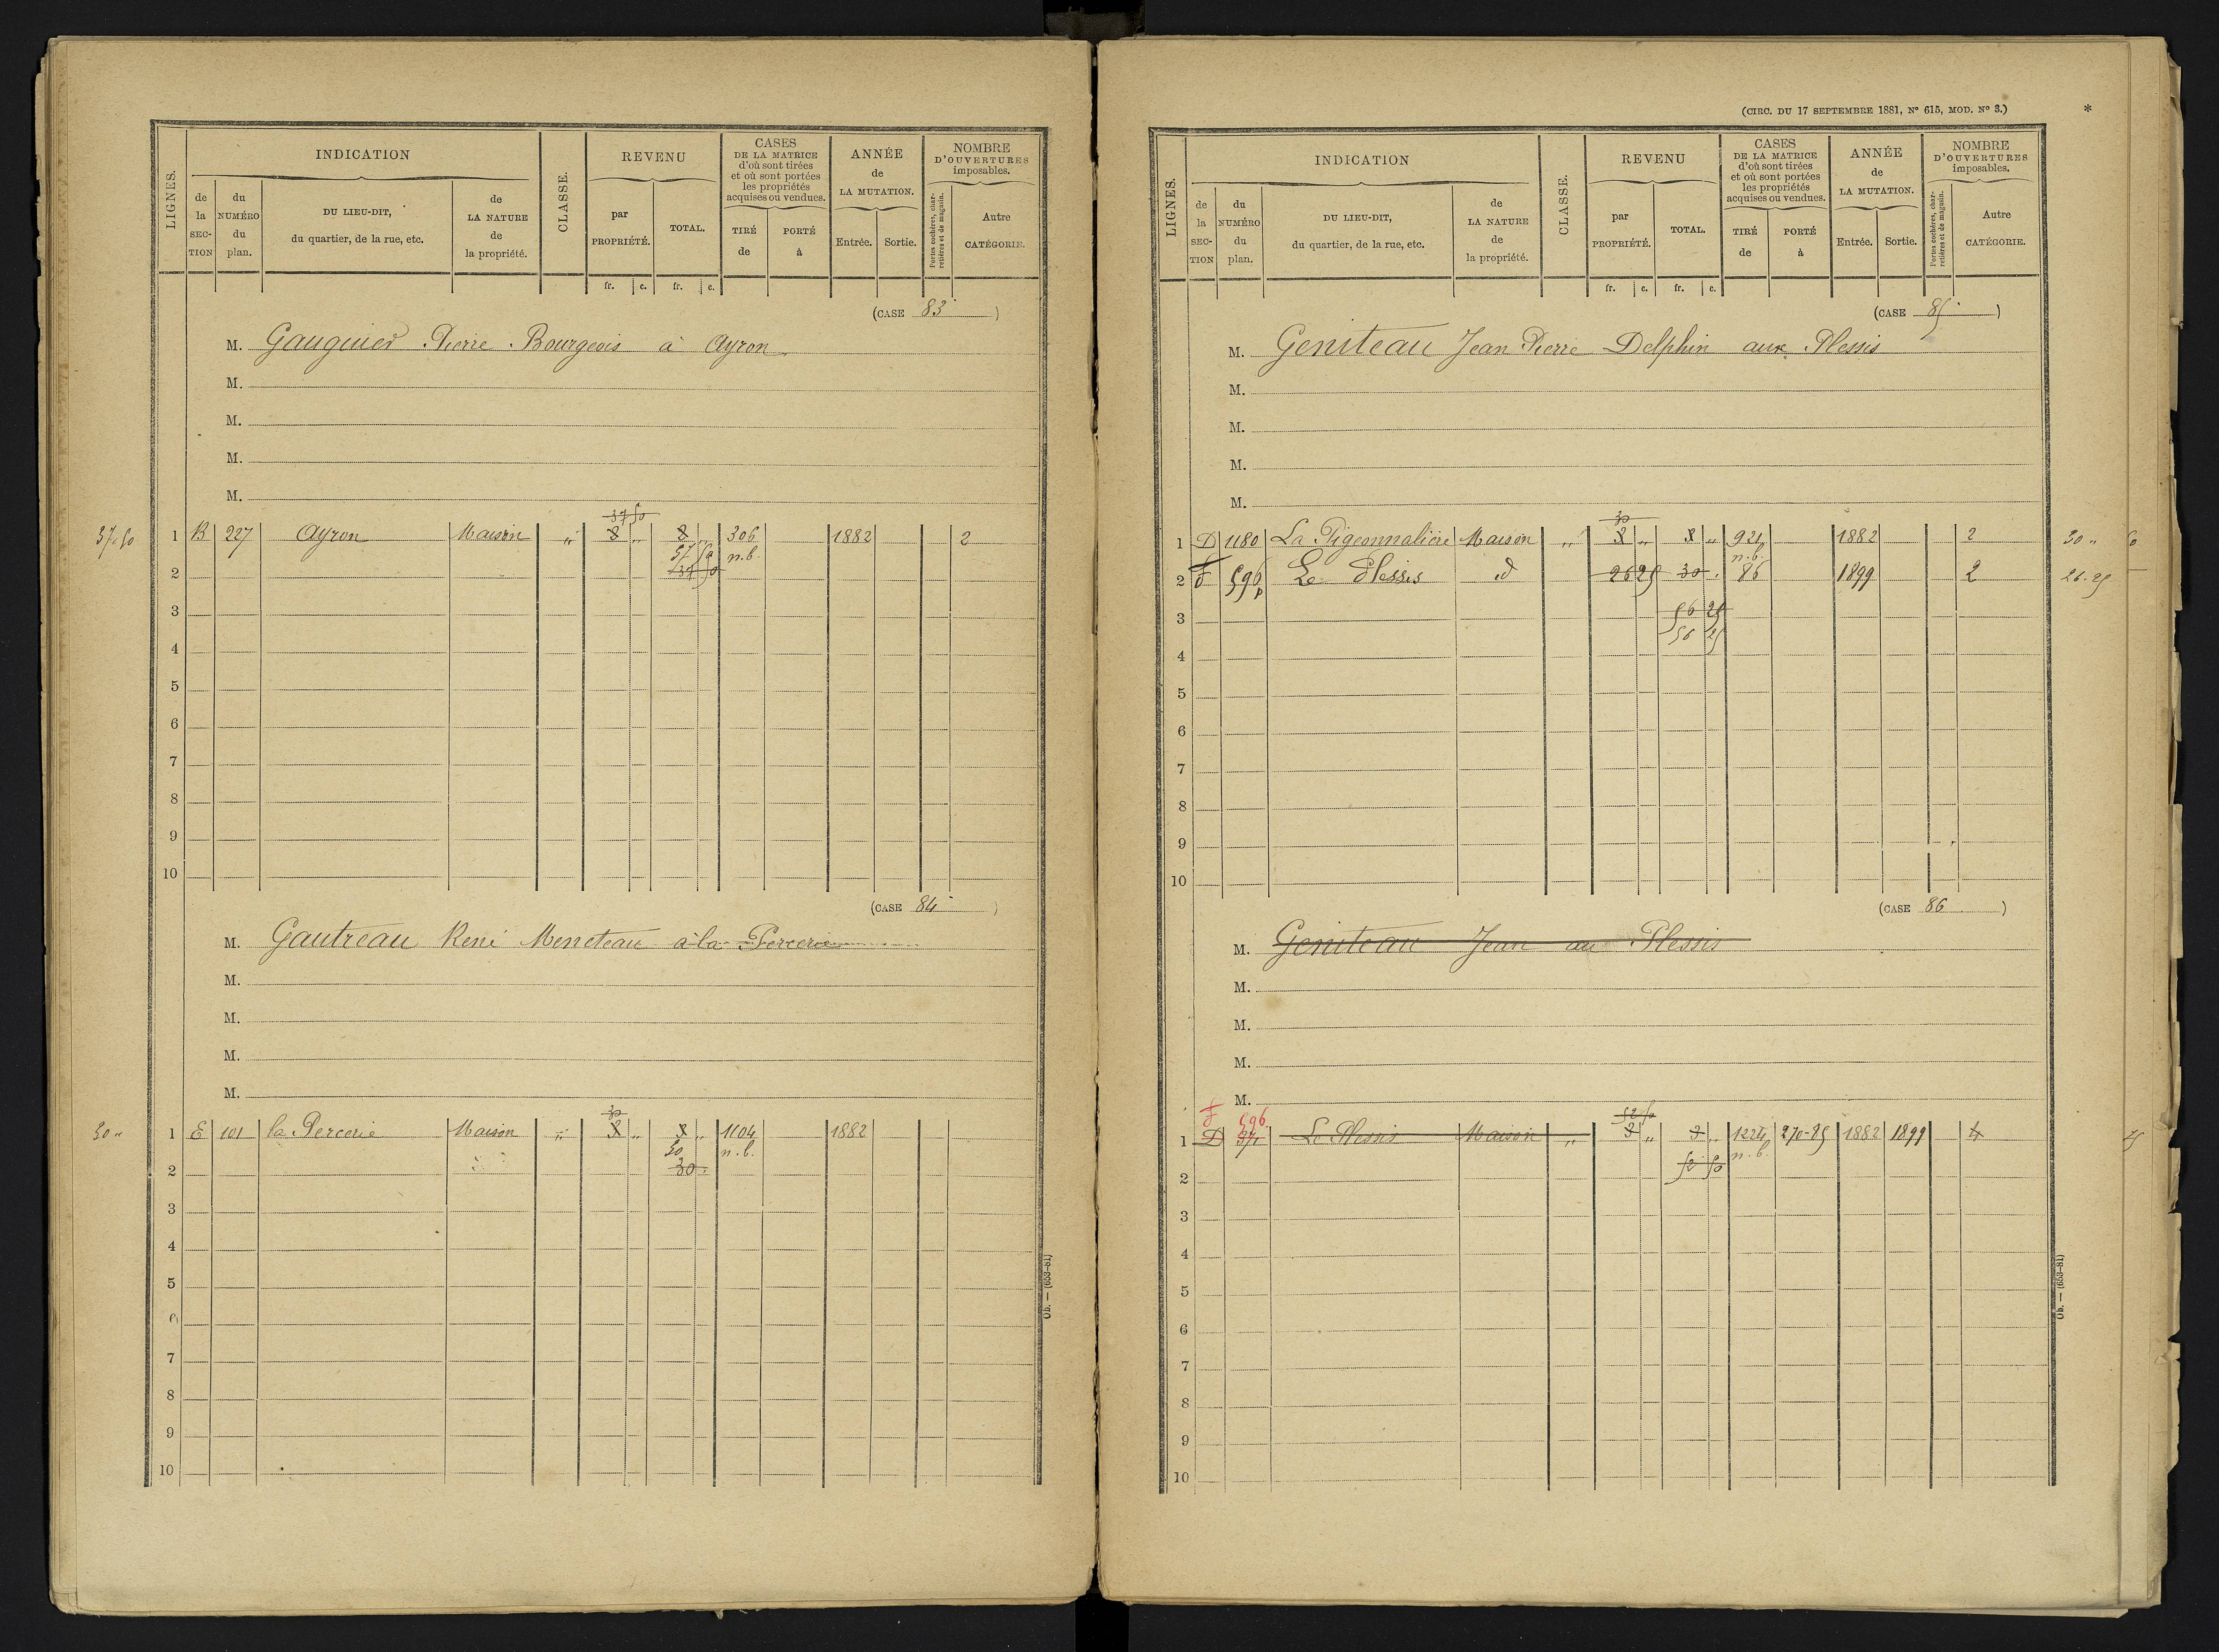 LIGNES.
INDICATION
de la SEC-TION
du NUMÉRO du plan.
DU LIEU-DIT, du quartier, de la rue, etc.
de LA NATURE de la propriété.
CLASSE.
REVENU
par PROPRIÉTÉ.
TOTAL.
CASES DE LA MATRICE d'où sont tirées et où sont portées les propriétés acquises ou vendues.
TIRÉ de
PORTÉ à
ANNÉE de LA MUTATION.
Entrée.
Sortie.
NOMBRE D'OUVERTURES imposables.
Portes cochères, charretières et de magasin.
Autre CATÉGORIE.
fr. c. fr. c.
(CASE 83 )
M. Gauguier Pierre Bourgeois à Ayron
M.
M.
M.
M.
37 50
37.50 1 B 227 Ayron Maison " 8 " 8 " 306 1882 2
37 50 n.b.
2 37 50
3
4
5
6
7
8
9
10
(CASE 84 )
M. Gautreau René Meneteau à la Percerie
M.
M.
M.
M.
30
30 " 1 E 101 la Percerie Maison " 8 " 8 " 1104 1882
30 n.b.
2 30
3
4
5
6
7
8
9
10
Ob. — (653-81)
(CIRC. DU 17 SEPTEMBRE 1881, Nº 615, MOD. Nº 3.) *
LIGNES.
INDICATION
de la SEC-TION
du NUMÉRO du plan.
DU LIEU-DIT, du quartier, de la rue, etc.
de LA NATURE de la propriété.
CLASSE.
REVENU
par PROPRIÉTÉ.
TOTAL.
CASES DE LA MATRICE d'où sont tirées et où sont portées les propriétés acquises ou vendues.
TIRÉ de
PORTÉ à
ANNÉE de LA MUTATION.
Entrée.
Sortie.
NOMBRE D'OUVERTURES imposables.
Portes cochères, charretières et de magasin.
Autre CATÉGORIE.
fr. c. fr. c.
(CASE 85 )
M. Geniteau Jean Pierre Delphin aux Plessis
M.
M.
M.
M.
30
1 D 1180 La Pigeonnalière Maison " 8 " 8 " 921 1882 2 30 "
n.b.
2 F 596p Le Plessis d 26 25 30 . 86 1899 2 26.25
3 56 25
56 25
4
5
6
7
8
9
10
(CASE 86 )
M. Geniteau Jean au Plessis
M.
M.
M.
M.
F 596 52 50
1 D 371 Le Plessis Maison " 3 " 3 " 1224 270-85 1882 1899 4
52 50 n.b.
2
3
4
5
6
7
8
9
10
Ob. — (653-81)